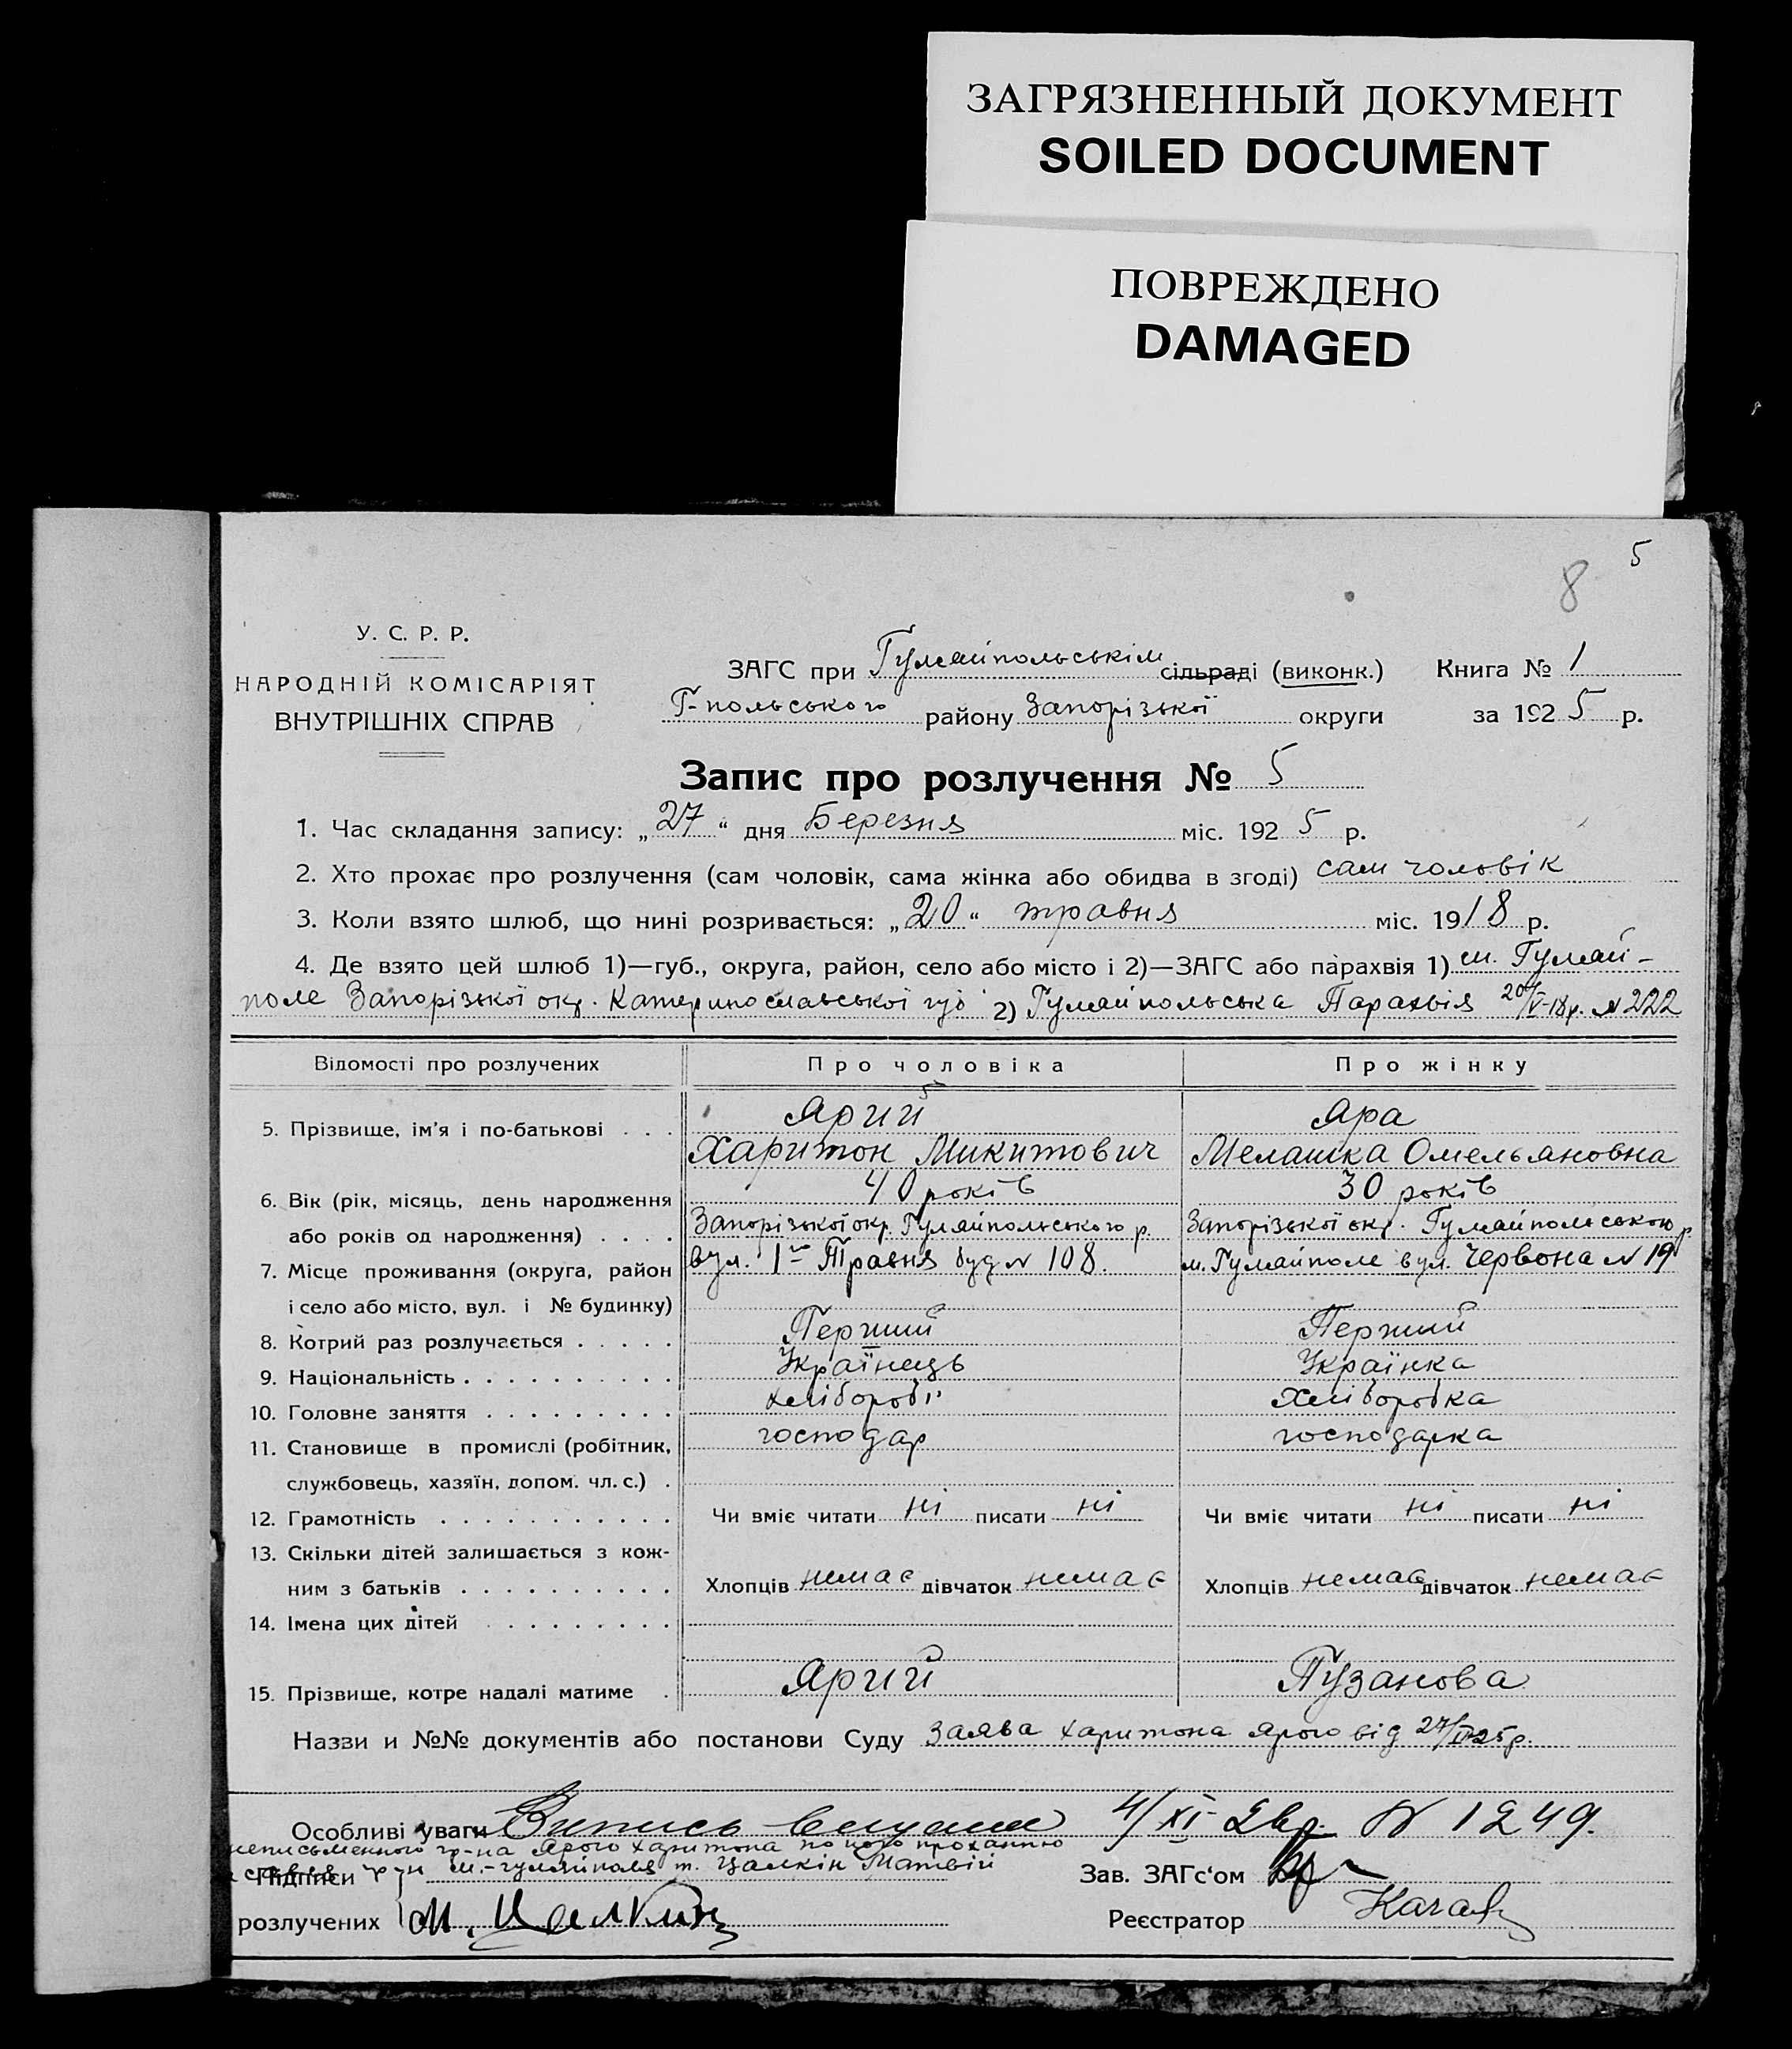 ЗАГРЯЗНЕННЫЙ ДОКУМЕНТ
SOILED DOCUMENT
ПОВРЕЖДЕНО
DAMAGED
5
8
У. С. Р. Р.
НАРОДНІЙ КОМІСАРІЯТ
ВНУТРІШНІХ СПРАВ
ЗАГС при Гуляйпольськім сільраді (виконк.) Книга № 1
Г-польського району Запорізької округи за 1925 р.
Запис про розлучення № 5
1. Час складання запису: „27“ дня Березня міс. 1925 р.
2. Хто прохає про розлучення (сам чоловік, сама жінка або обидва в згоді) сам чоловік
3. Коли взято шлюб, що нині розривається: „20“ травня міс. 1918 р.
4. Де взято цей шлюб 1)—губ., округа, район, село або місто і 2)—ЗАГС або парахвія 1) м. Гуляй-
поле Запорізької окр. Катеринославської губ 2) Гуляйпольська Парахвія 20/V-18р. № 222
Відомості про розлучених Про чоловіка Про жінку
5. Прізвище, ім'я і по-батькові . . . Ярий Яра
Харитон Микитович Мелашка Омельяновна
6. Вік (рік, місяць, день народження 40 років 30 років
або років од народження) . . . . Запорізької окр. Гуляйпольського р. Запорізької окр. Гуляйпольського р.
7. Місце проживання (округа, район вул. 1го Травня буд № 108. м. Гуляйполе вул. Червона № 19
і село або місто, вул. і № будинку)
8. Котрий раз розлучається . . . . . Перший Перший
9. Національність . . . . . . . . . . Українець Українка
10. Головне заняття . . . . . . . . . хлібороб Хліборобка
11. Становище в промислі (робітник, господар господарка
службовець, хазяїн, допом. чл. с.) .
12. Грамотність . . . . . . . . . . . Чи вміє читати ні писати ні Чи вміє читати ні писати ні
13. Скільки дітей залишається з кож-
ним з батьків . . . . . . . . . . Хлопців немає дівчаток немає Хлопців немає дівчаток немає
14. Імена цих дітей . . . . . . . . .
15. Прізвище, котре надалі матиме . Ярий Пузанова
Назви и №№ документів або постанови Суду Заява Харитона Ярого від 27/III-25р.
Особливі уваги Випись 4/XI- № 1249.
неписьменного гр-на Ярого Харитона по його проханню
Підписи гр-н м.-Гуляйполя т. Цалкін Матвій Зав. ЗАГс‘ом
розлучених М. Цалкин Реєстратор